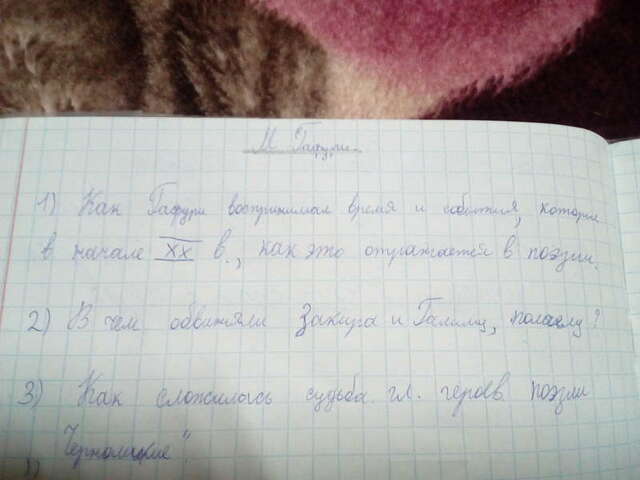 М Гафури.
1) Как Гафури воспринимал время и события, которые
в начале XX в., как это отражается в поэзии.
2) В чем обвиняли Закира и Галиму, почему?
3) Как сложилась судьба гл. героев поэзии
Чернолицые".